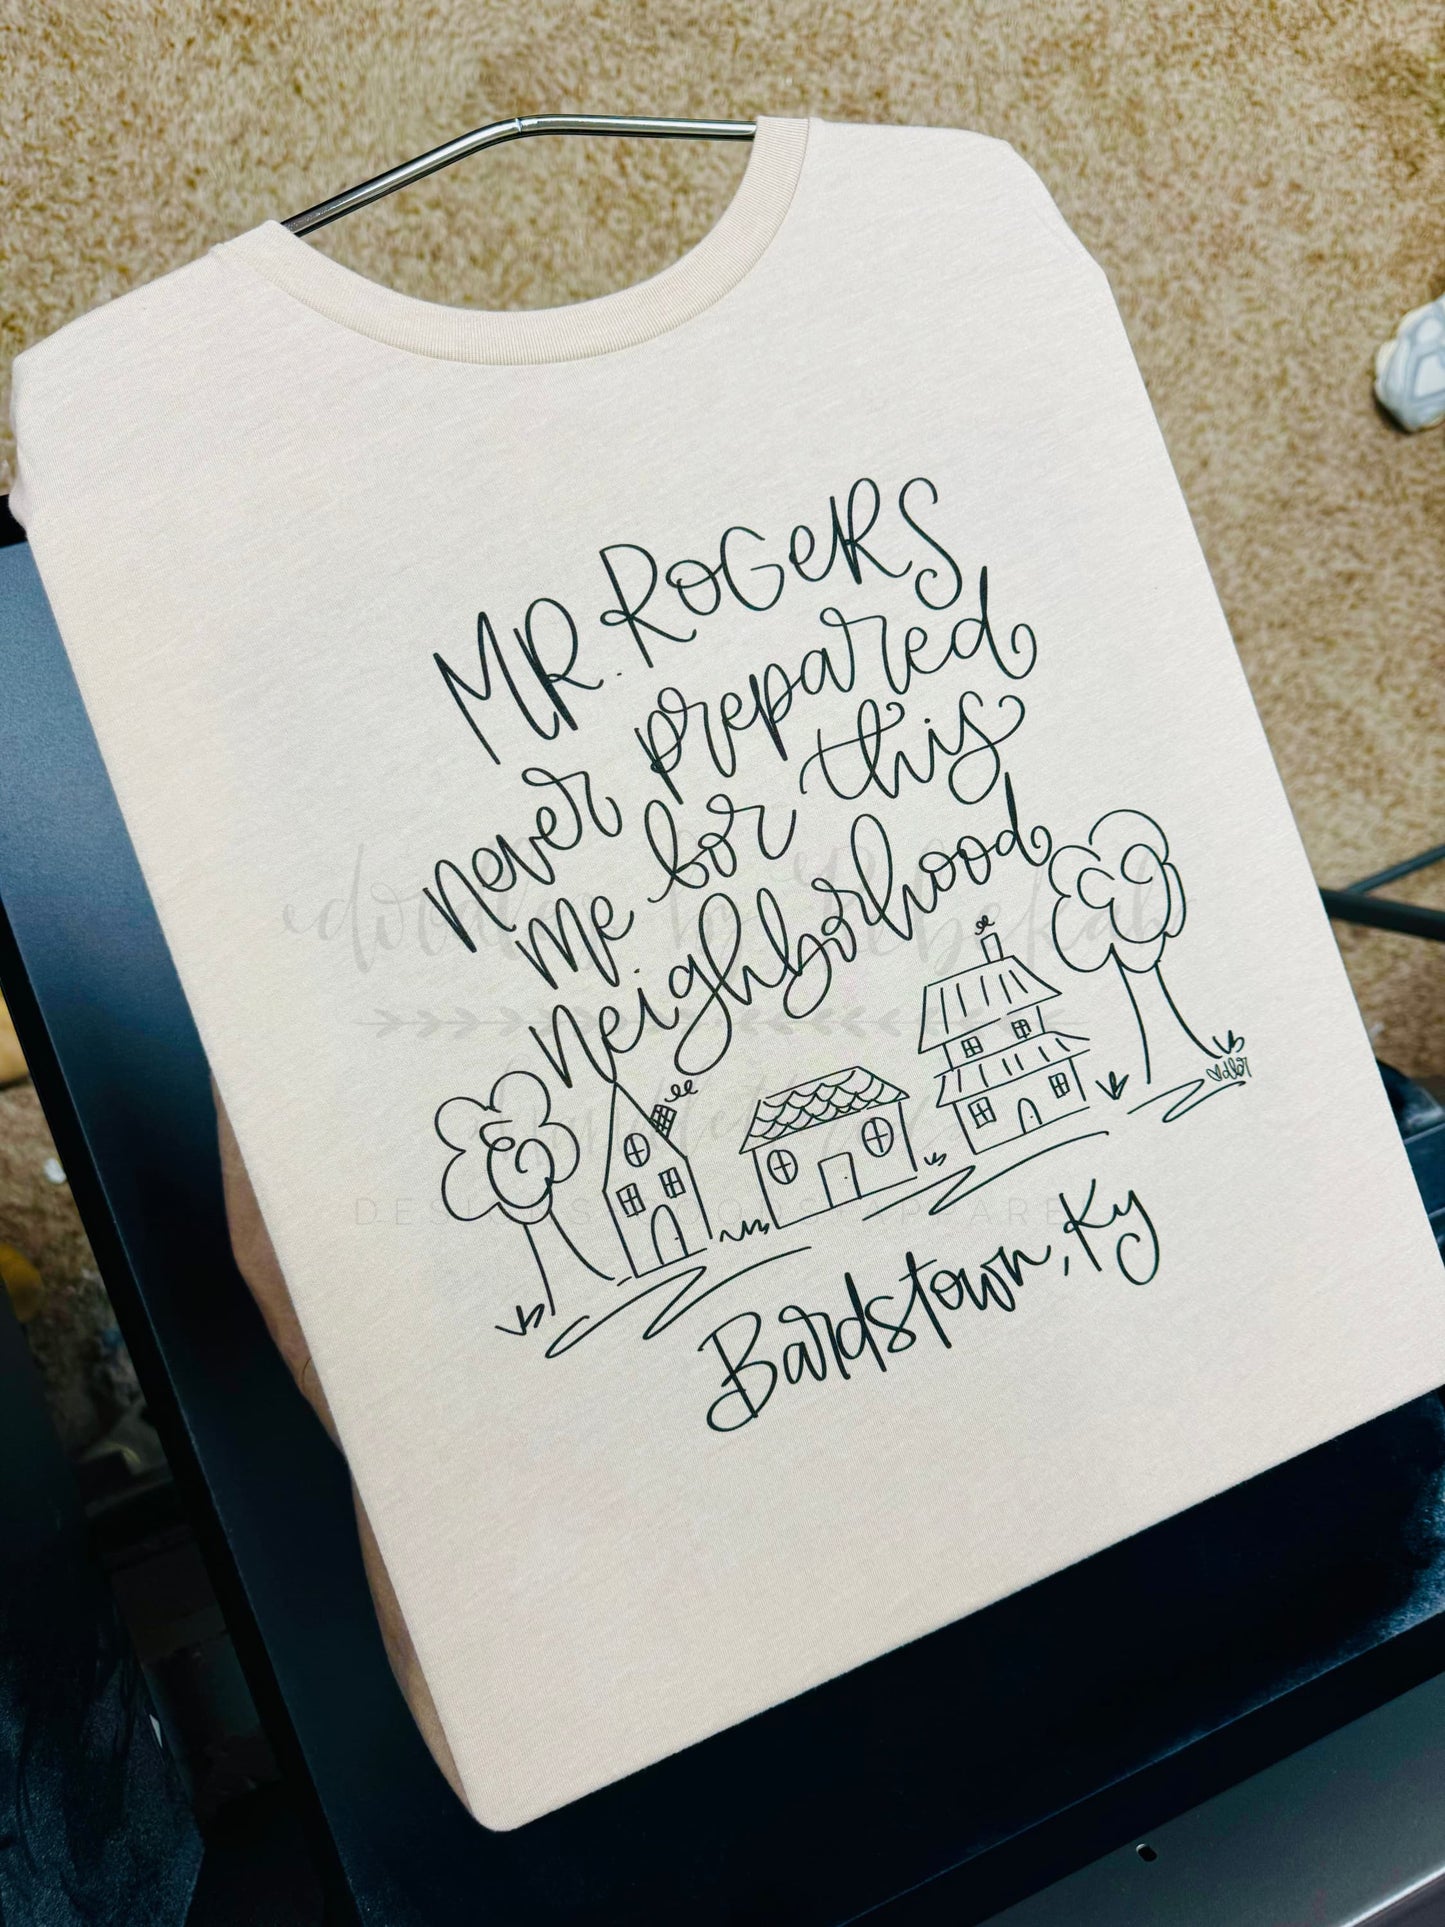 MR. ROGERS
never prepared
me for this
neighborhood
Bardstown, Ky
doodles by Rebekah
DESIGNS TOOLS APPAREL